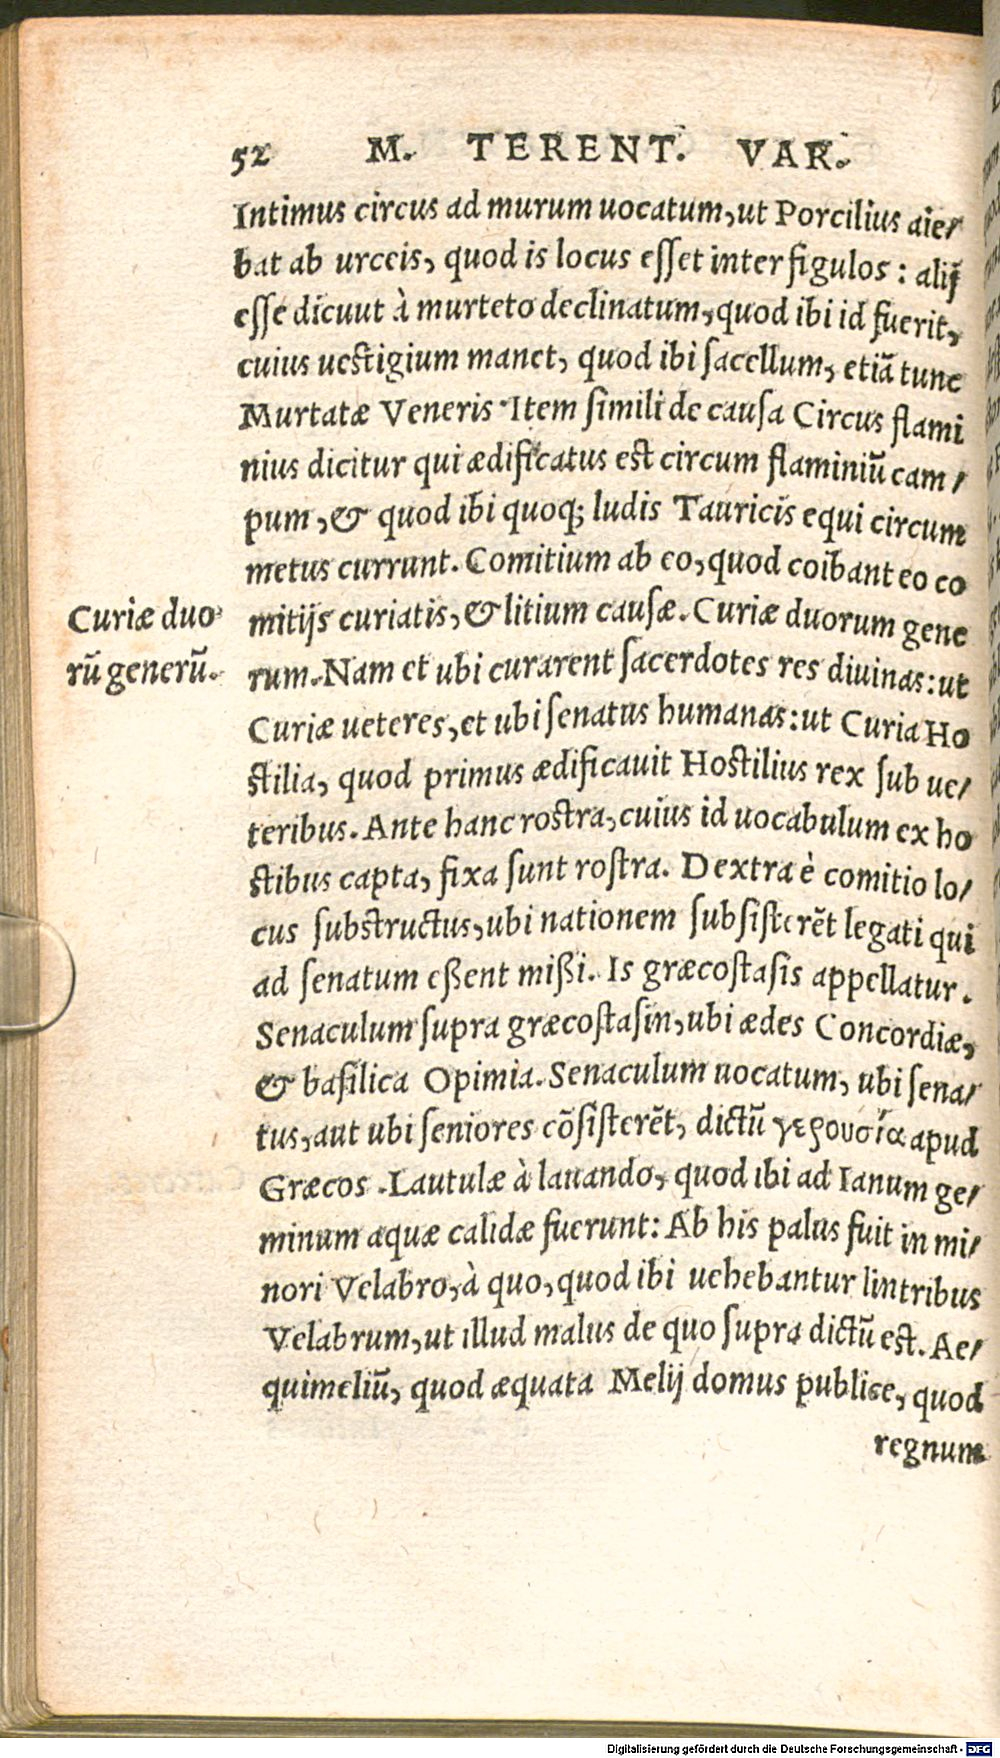 52 M. TERENT. VAR.
Intimus circus ad murum uocatum, ut Porcilius aie/
bat ab urceis, quod is locus esset inter figulos: alij
esse dicuut à murteto declinatum, quod ibi id fuerit,
cuius uestigium manet, quod ibi sacellum, etiã tunc
Murtatæ Veneris. Item simili de causa Circus flami
nius dicitur qui ædificatus est circum flaminiũ cam/
pum, & quod ibi quoq; ludis Tauricis equi circum
metus currunt. Comitium ab eo, quod coibant eo co
mitijs curiatis, & litium causæ. Curiæ duorum gene
rum. Nam et ubi curarent sacerdotes res diuinas: ut
Curiæ ueteres, et ubi senatus humanas: ut Curia Ho
stilia, quod primus ædificauit Hostilius rex sub ue/
teribus. Ante hanc rostra, cuius id uocabulum ex ho
stibus capta, fixa sunt rostra. Dextra è comitio lo/
cus substructus, ubi nationem subsisterẽt legati qui
ad senatum eßent mißi. Is græcostasis appellatur.
Senaculum supra græcostasin, ubi ædes Concordiæ,
& basilica Opimia. Senaculum uocatum, ubi sena/
tus, aut ubi seniores cõsisterẽt, dictũ γερουσία apud
Græcos. Lautulæ à lauando, quod ibi ad Ianum ge/
minum aquæ calidæ fuerunt: Ab his palus fuit in mi/
nori Velabro, à quo, quod ibi uehebantur lintribus
Velabrum, ut illud malus de quo supra dictũ est. Ae/
quimeliũ, quod æquata Melij domus publice, quod
regnum
Curiæ duo
rũ generũ.
Digitalisierung gefördert durch die Deutsche Forschungsgemeinschaft - DFG